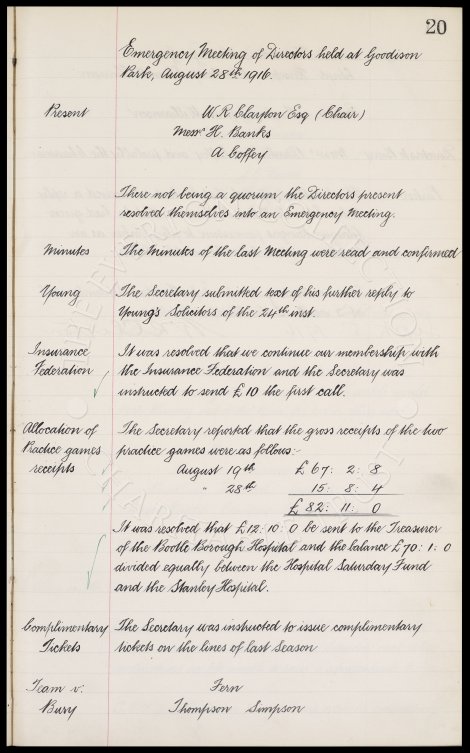 20
Emergency Meeting of Directors held at Goodison
Park, August 28th 1916.
Present W R Clayton Esq (Chair)
Messrs H. Banks
A Coffey
There not being a quorum the Directors present
resolved themselves into an Emergency Meeting.
Minutes The Minutes of the last Meeting were read and confirmed
Young The Secretary submitted text of his further reply to
Young's Solicitors of the 24th inst.
Insurance It was resolved that we continue our membership with
Federation the Insurance Federation and the Secretary was
instructed to send £10 the first call.
Allocation of The Secretary reported that the gross receipts of the two
Practice games practice games were as follows:-
receipts August 19th £67: 2: 8
" 28th 15: 8: 4
£82: 11: 0
It was resolved that £12: 10: 0 be sent to the Treasurer
of the Bootle Borough Hospital and the balance £70: 1: 0
divided equally between the Hospital Saturday Fund
and the Stanley Hospital.
Complimentary The Secretary was instructed to issue complimentary
Tickets tickets on the lines of last Season
Team v: Fern
Bury Thompson Simpson